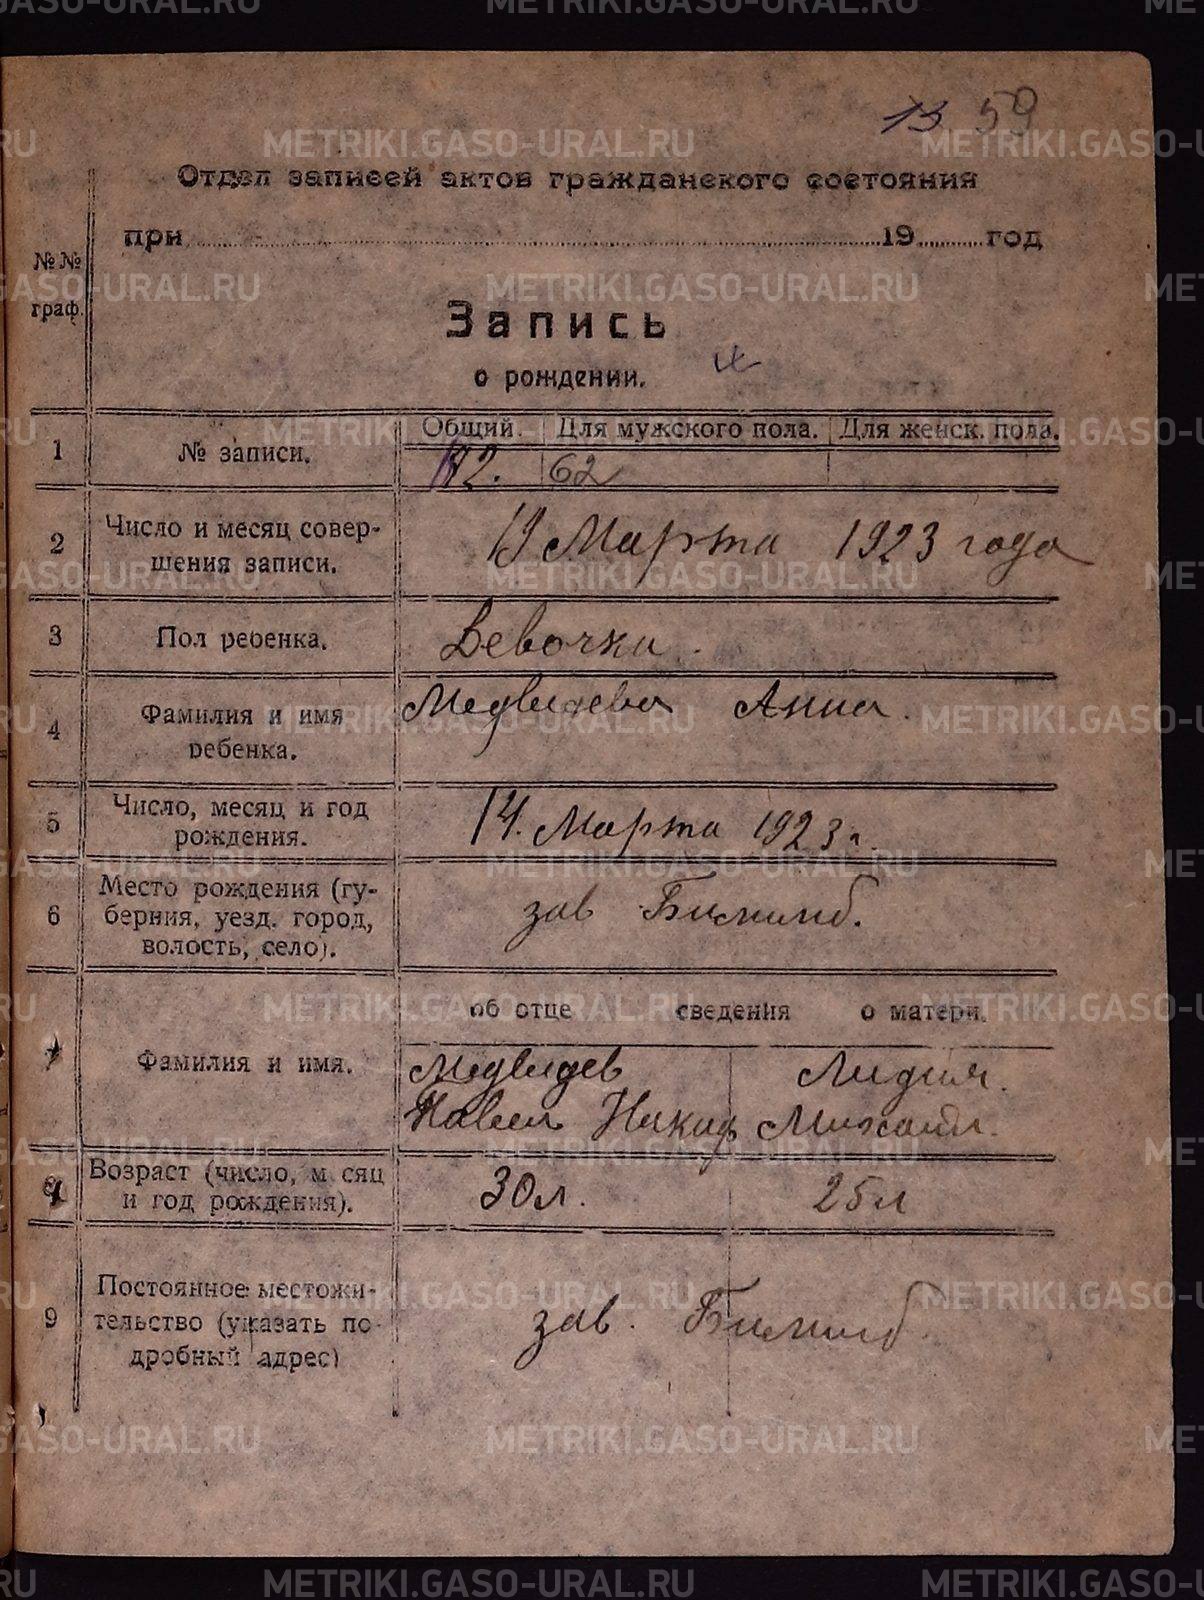 13 59
Отдел записей актов гражданского состояния
при 19 год
№№
граф.
Запись
о рождении.
Общий. Для мужского пола. Для женск. пола.
1 № записи.
62
2 Число и месяц совер-
шения записи.
19 Марта 1923 года
3 Пол ребенка. Девочка.
4 Фамилия и имя
ребенка.
Медведева Анна.
5 Число, месяц и год
рождения.
14. Марта 1923 г.
6 Место рождения (гу-
берния, уезд. город,
волость, село).
зав Билимб.
об отце сведения о матери.
Фамилия и имя.
Медведев Лидия.
Павел Никиф Михайл.
Возраст (число, м сяц
и год рождения).
30л. 25л
9 Постоянное местожи-
тельство (указать по-
дробный адрес)
зав. Билимб
METRIKI.GASO-URAL.RU